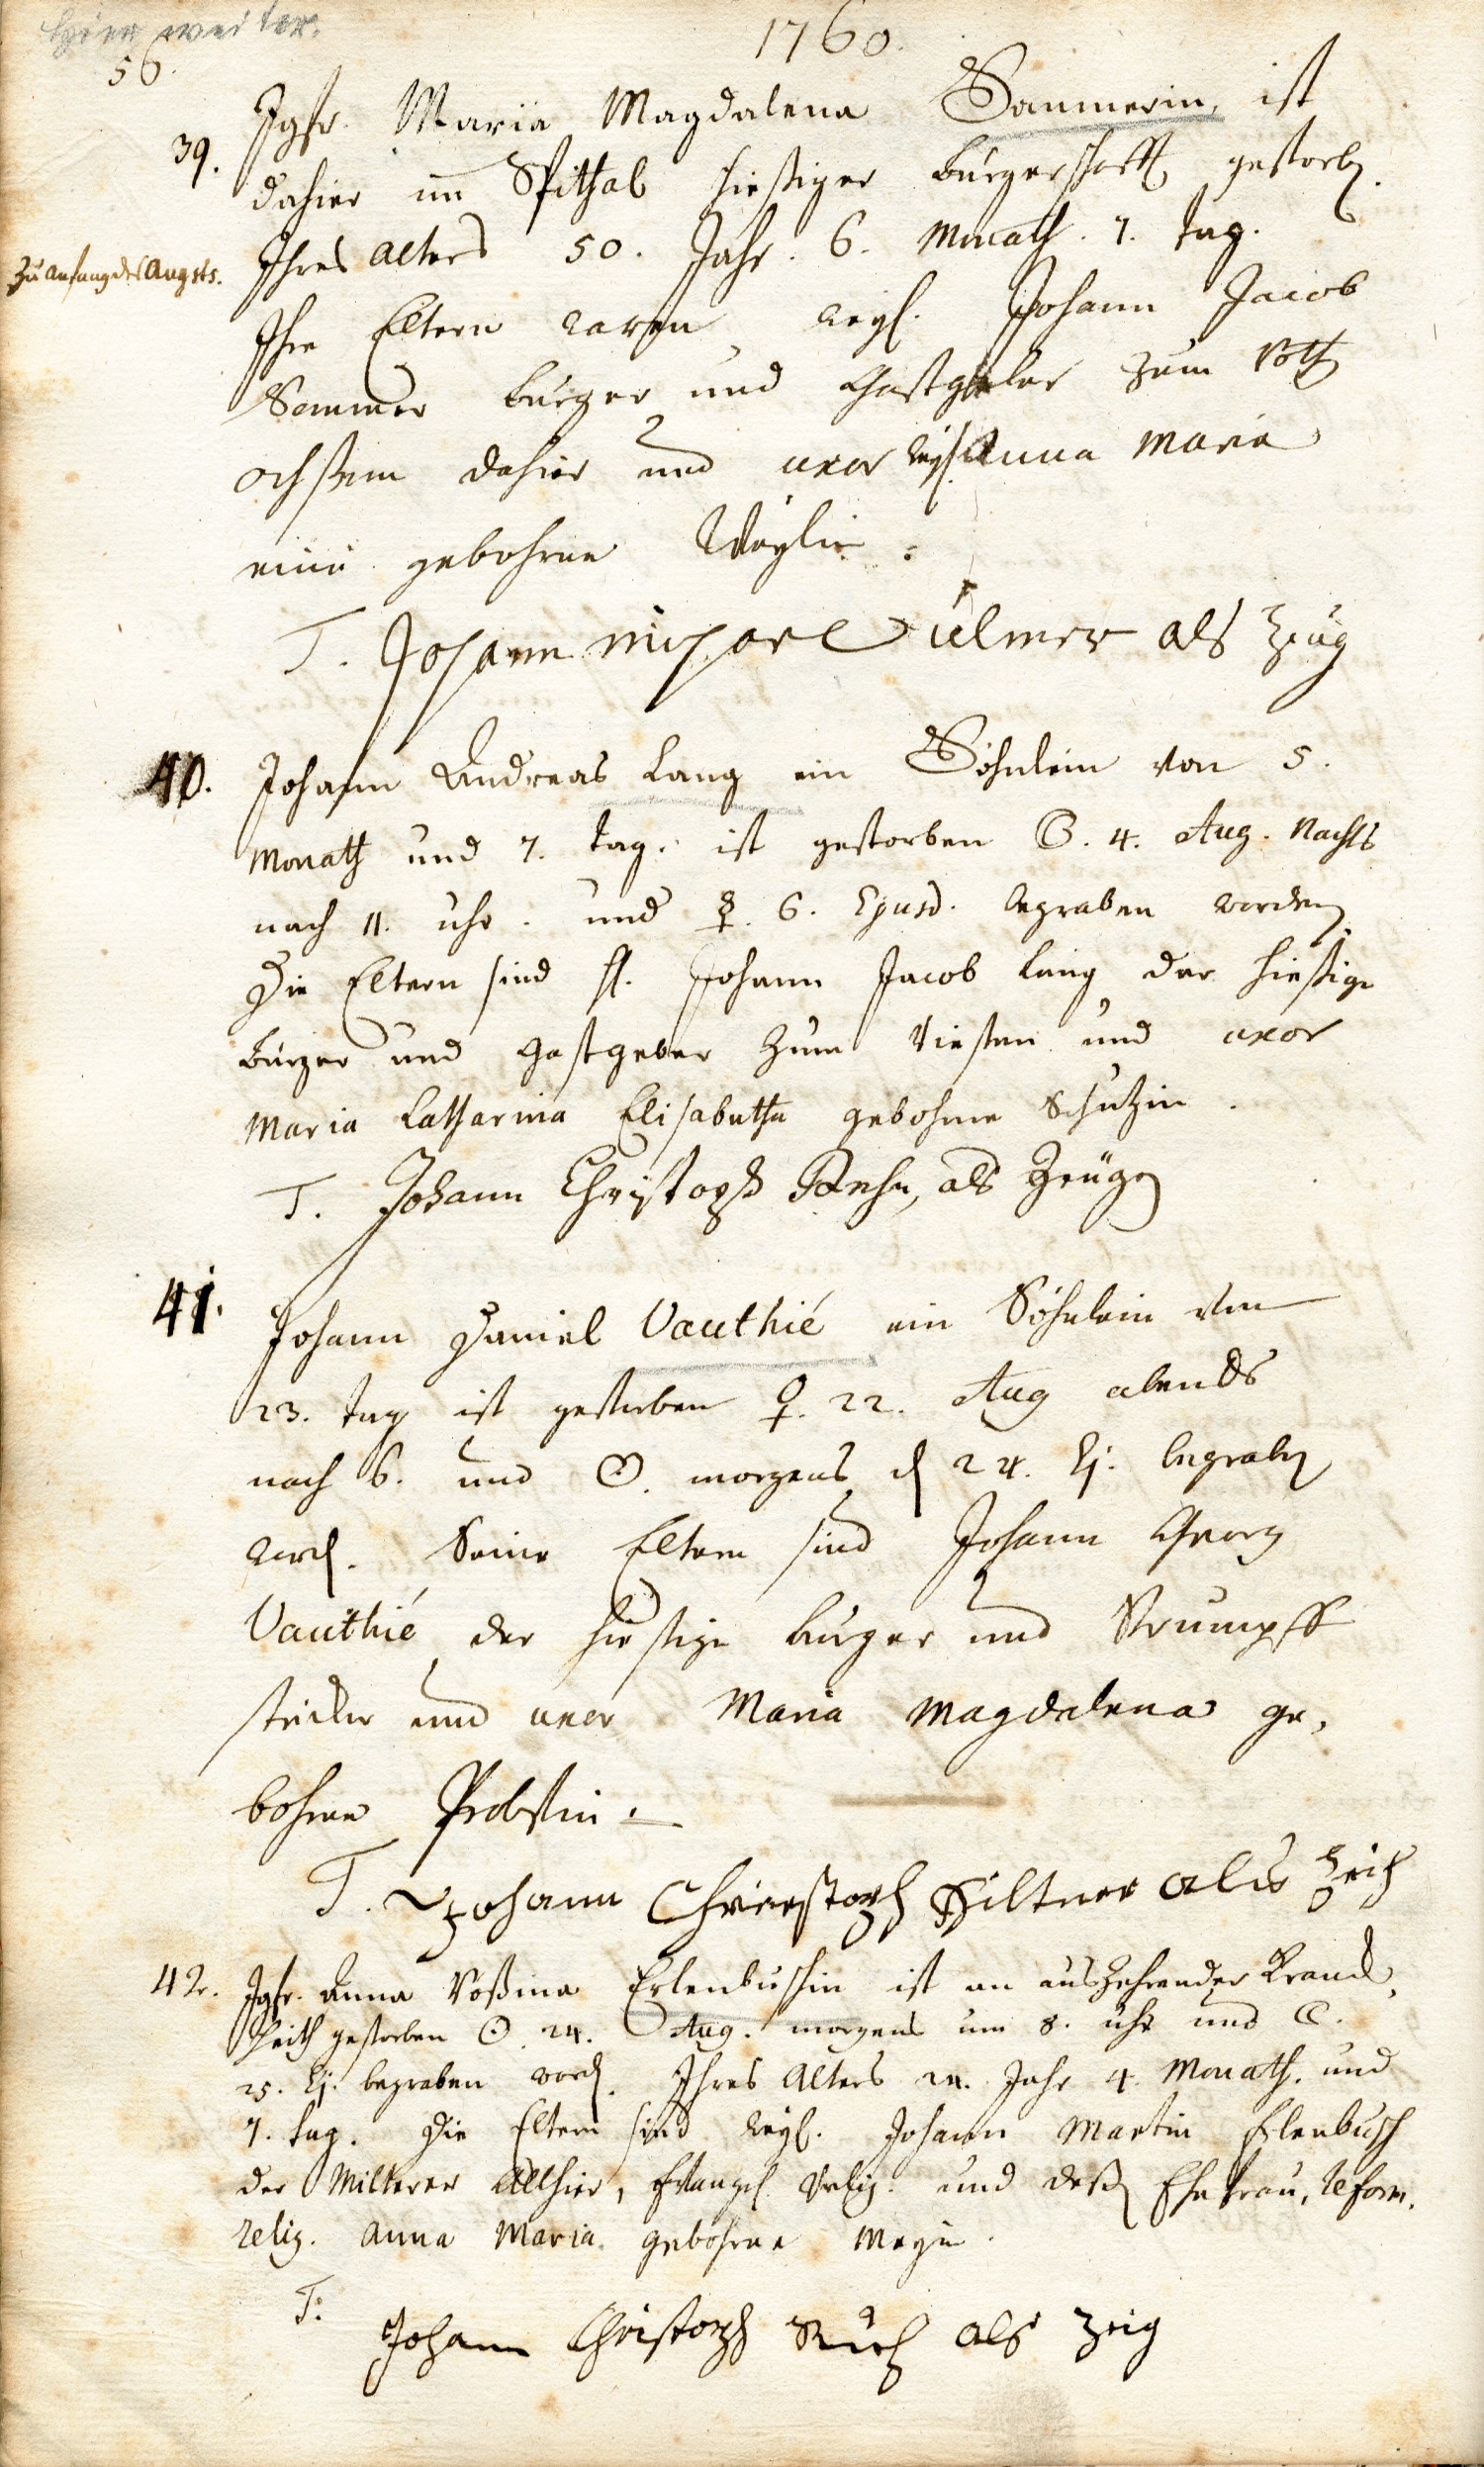 hier weiter.
56.
1760.
39. Jgfr. Maria Magdalena Sammerin, ist
dahier im Spithal hießiger Burgerschafft gestorb.
Zu Anfang des Augsts.
Ihres alters 50. Jahr. 6. Monath. 7. tag.
Ihre Eltern waren weyl. Johann Jacob
Sammer burger und Gastgeber zum roth
ochßen dahier und uxor weyl. Anna Maria
eine gebohrne
T. Johann Michael Ulmer als Zeug
40. Johann Andreas Lang ein Söhnlein von 5.
Monath und 7. tag. ist gestorben ☾. 4. Aug. Nachts
nach 11. uhr. und ☿. 6. Ejusd. begraben worden
Die Eltern sind H. Johann Jacob Lang der hießige
burger und Gastgeber zum und uxor
Maria Catharina Elisabetha gebohrne Schützin.
T. Johann Christoph als Zeüge
41. Johann Daniel Vauthié ein Söhnlein von
23. tag ist gestorben ♀. 22. Aug abends
nach 6. und ☉. morgens d 24. Ej. begraben
word. Seine Eltern sind Johann Georg
Vauthié der hießige burger und Strumpff
stricker und uxor Maria Magdalena ge,
bohrne Probstin.
T. Johann Chrierstoph Hiltner als Zeich
42. Jgfr. Anna Roßina Erlenbuschin ist an auszehrender Kranck,
heith gestorben ☉. 24. Aug. morgens um 8. uhr und ☾.
25. Ej. begraben word. Ihres Alters 24. Jahr 4. Monath. und
7. tag. Die Eltern sind weyl. Johann Martin Erlenbusch
der Allhier, Evangel. Relig. und deßen Ehefrau, reform.
relig. Anna Maria gebohrne
T: Johann Christoph als Zeig